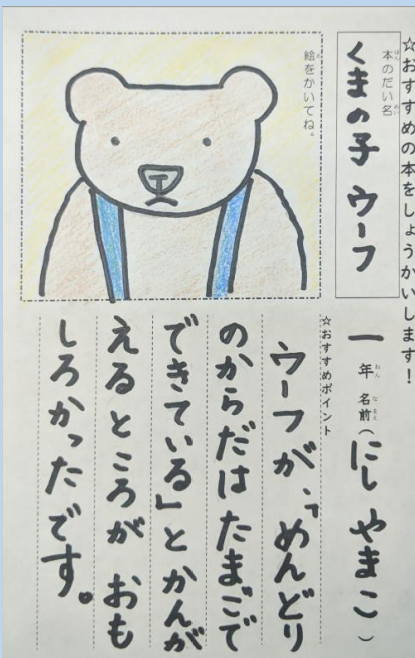 ☆おすすめの本をしょうかいします！
本のだい名
くまの子 ウーフ
絵をかいてね。
一年 名前（にし やまこ）
☆おすすめポイント
ウーフが、「めんどり
のからだは たまごで
できている」と かんが
えるところが おも
しろかったです。